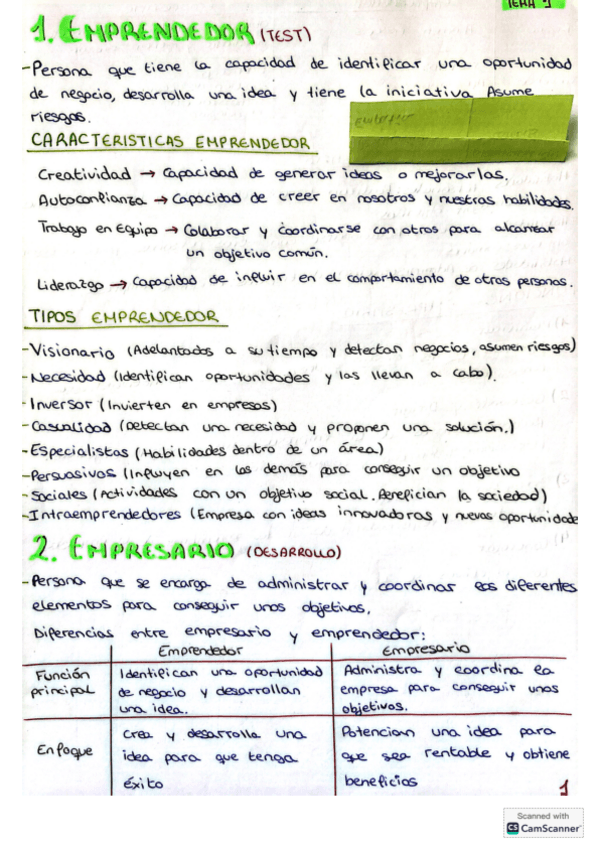 TEMA 1
1. EMPRENDEDOR (TEST)
-Persona que tiene la capacidad de identificar una oportunidad
de negocio, desarrolla una idea y tiene la iniciativa. Asume
riesgos.
CARACTERISTICAS EMPRENDEDOR
Creatividad → Capacidad de generar ideas o mejorarlas.
Autoconfianza → Capacidad de creer en nosotros y nuestras habilidades.
Trabajo en Equipo → Colaborar y coordinarse con otros para alcanzar
un objetivo común.
Liderazgo → Capacidad de influir en el comportamiento de otras personas.
TIPOS EMPRENDEDOR
-Visionario (Adelantados a su tiempo y detectan negocios, asumen riesgos)
-Necesidad (Identifican oportunidades y las llevan a cabo).
-Inversor (Invierten en empresas)
-Casualidad (Detectan una necesidad y proponen una solución.)
-Especialistas (Habilidades dentro de un área)
-Persuasivos (Influyen en los demás para conseguir un objetivo
-Sociales (Actividades con un objetivo social. Benefician la sociedad)
-Intraemprendedores (Empresa con ideas innovadoras y nuevas oportunidade
2. EMPRESARIO (DESARROLLO)
-Persona que se encarga de administrar y coordinar los diferentes
elementos para conseguir unos objetivos.
Diferencias entre empresario y emprendedor:
Emprendedor Empresario
Función principal
Identifican una oportunidad
de negocio y desarrollan
una idea.
Administra y coordina la
empresa para conseguir unos
objetivos.
Enfoque
Crea y desarrolla una
idea para que tenga
éxito
Potencian una idea para
que sea rentable y obtiene
beneficios
1
Scanned with
CS CamScanner